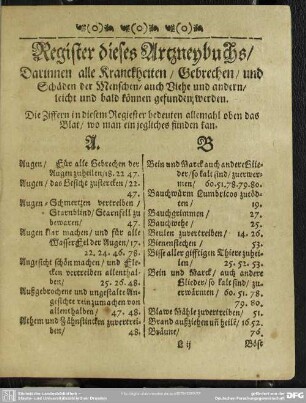 Register dieses Artzneybuchs/
Darinnen alle Kranckheiten / Gebrechen / und
Schäden der Menschen / auch Viehe und andern,
leicht und bald können gefunden werden.
Die Ziffern in diesem Register bedeuten allemahl oben das
Blat / wo man ein jegliches finden kan.
A.
Augen / Für alle Gebrechen der
Augen zu heilen, 18. 22. 47.
Augen / das Gesicht zu stercken / 22.
47.
Augen / Schmertzen vertreiben /
Starnblind / Starnfell zu
bewerten / 47.
Augen klar machen / und für alle
Wasser Fel der Augen / 17.
22. 24. 46. 78.
Angesicht schön machen / und Fle-
cken vertreiben allenthal-
ben / 25. 26. 48.
Auffgebrochene und ungestalte An-
gesichte rein zu machen von
allenthalben / 47. 48.
Athem und Zähn stincken zu vertrei-
ben / 48.
B
Bein und Marck auch ander Glie-
der / so kalt sind / zu erwer-
men / 60. 51. 78. 79. 80.
Bauchwürm Lumbricos zu töd-
ten / 19.
Bauchgrimmen / 27.
Bauchwehe / 25.
Beulen zu vertreiben / 14. 26.
Bienenstechen / 53.
Bisse aller gifftigen Thiere zu hei-
len / 25. 52. 53.
Bein und Marck / auch andere
Glieder / so kalt sind / zu
erwärmen / 60. 51. 78.
79. 80.
Blawe Mähle zu vertreiben / 51.
Brand außziehen uñ heilē / 16. 52.
Bräune / 76.
L ij
Böse